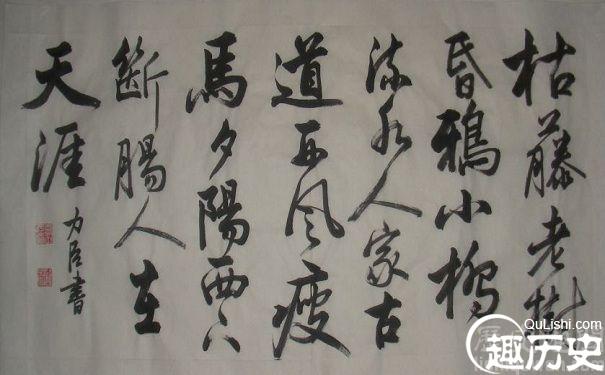 枯藤老樹
昏鴉小橋
流水人家古
道西風瘦
馬夕陽西下
斷腸人在
天涯
力臣書
QuLishi.com
趣历史